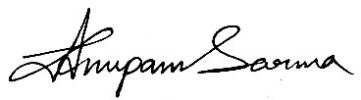 Anupam Sarma